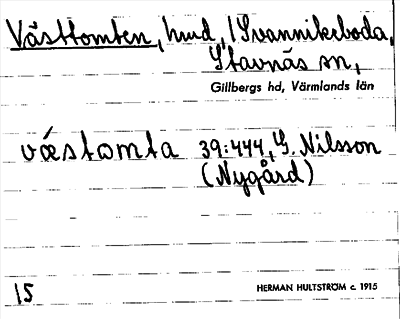 Västtomten, hmd, / Svannikeboda,
Stavnäs sn,
Gillbergs hd, Värmlands län
væstomta 39:444, G. Nilsson
(Nygård)
15
HERMAN HULTSTRÖM c. 1915